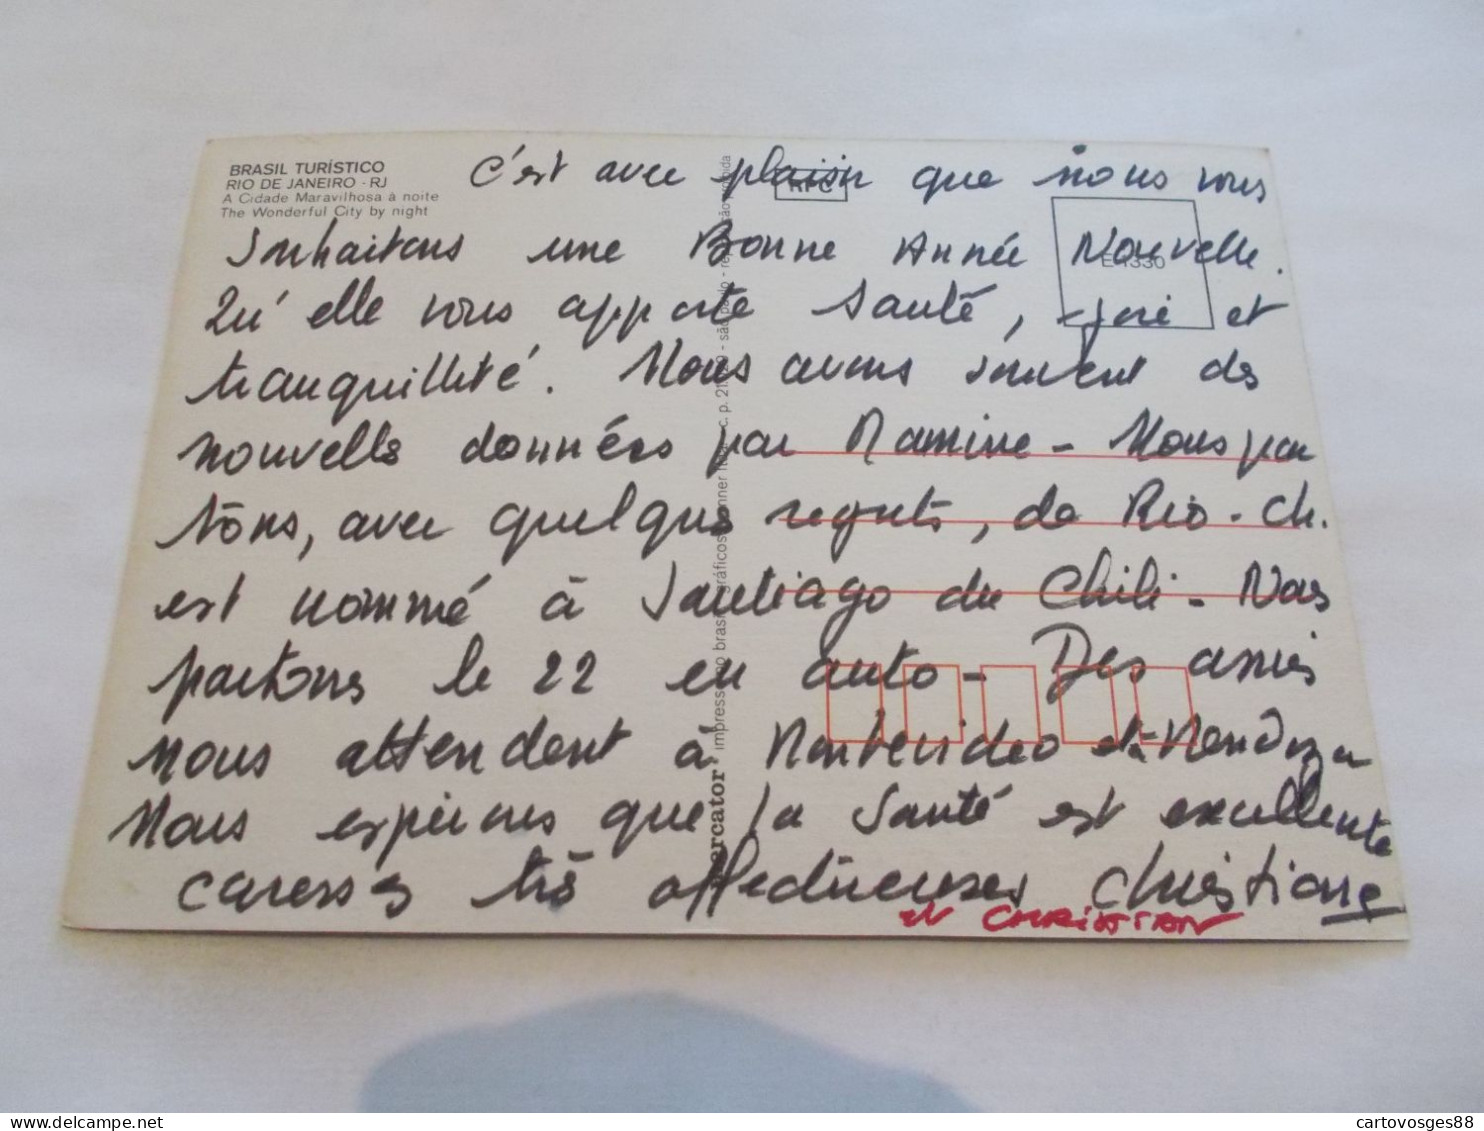 BRASIL TURÍSTICO
RIO DE JANEIRO - RJ
A Cidade Maravilhosa à noite
The Wonderful City by night
C'est avec plaisir que nous vous
souhaitons une Bonne Année Nouvelle.
Qu'elle vous apporte santé, joie et
tranquillité. Nous avons souvent de
nouvelles données par Mamine - Nous par
tons, avec quelques regrets, de Rio - Ch.
est nommé à Santiago du Chili - Nous
partons le 22 en auto - Des amis
nous attendent à Montevideo et à Mendoza
Nous espérons que la santé est excellente
caresses très affectueuses Christiane
et CHRISTIAN
E-1330
mercator